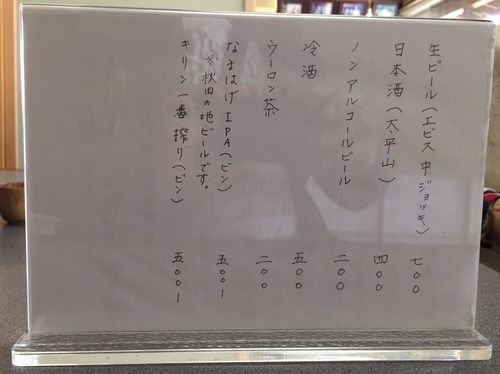 生ビール(エビス中ジョッキ) 七〇〇
日本酒(太平山) 四〇〇
ノンアルコールビール 二〇〇
冷酒 五〇〇
ウーロン茶 二〇〇
なまはげIPA(ビン) 五〇〇ー
※秋田の地ビールです。
キリン一番搾り(ビン) 五〇〇ー